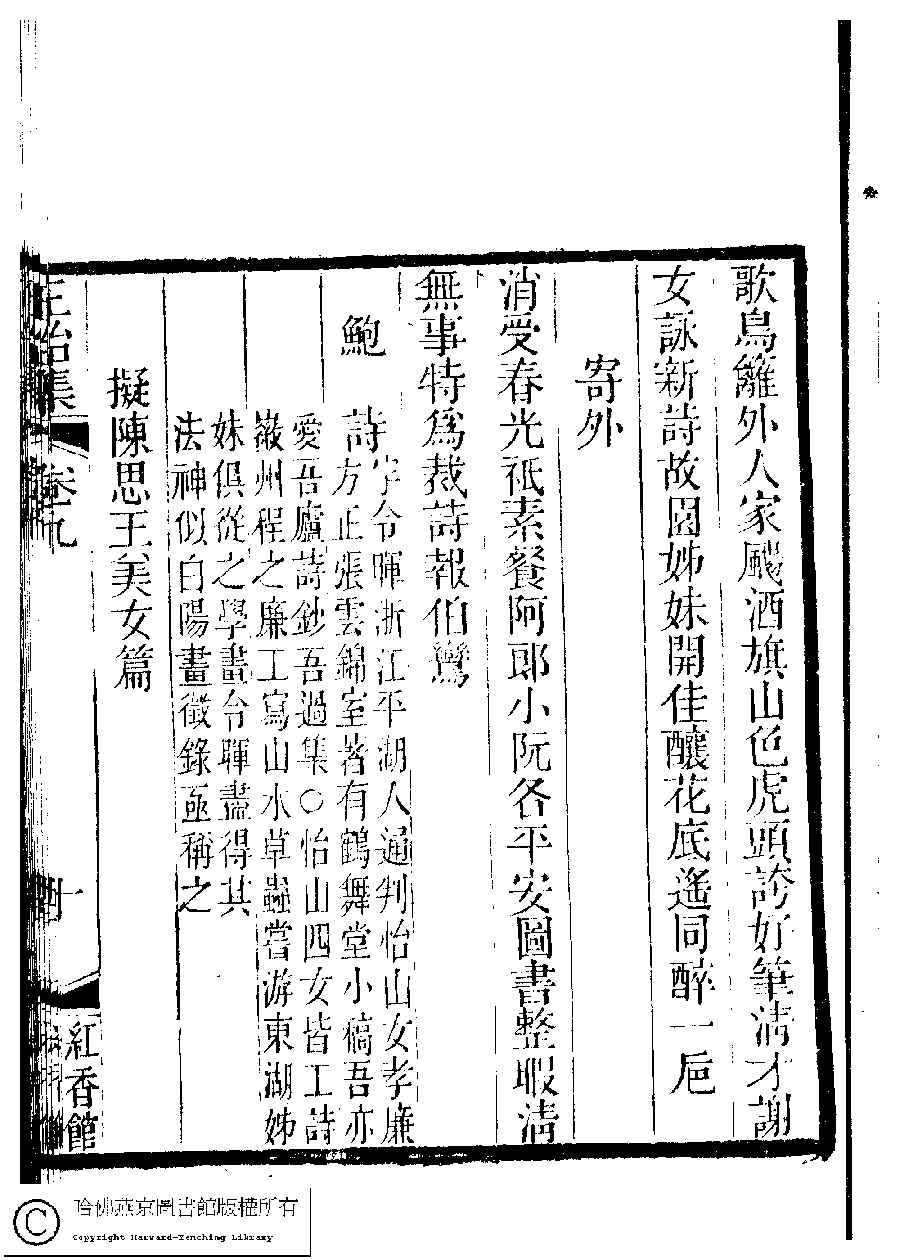 歌鳥籬外人家颺酒旗山色虎頭誇好筆淸才謝
女詠新詩故園姊妹開佳釀花底遙同醉一巵
寄外
消受春光祇素餐阿郞小阮各平安圖書整暇淸
無事特爲裁詩報伯鸞
鮑詩字令暉浙江平湖人通判怡山女孝廉
方正張雲錦室著有鶴舞堂小稿吾亦
愛吾廬詩鈔吾過集○怡山四女皆工詩
徽州程之廉工寫山水草蟲嘗游東湖姊
妹俱從之學畫令暉盡得其
法神似白陽畫徵錄亟稱之
擬陳思王美女篇
正始集 卷九 十 紅香館
哈佛燕京圖書館版權所有
Copyright Harvard-Yenching Library